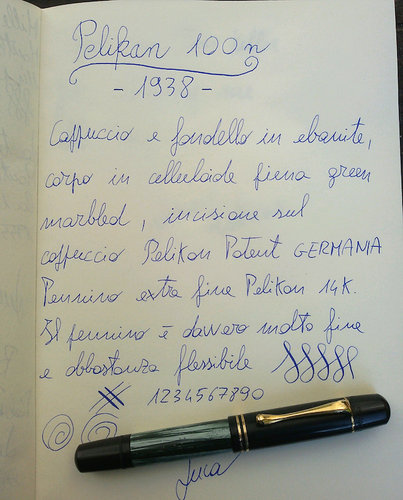 Pelikan 100n
- 1938 -
Cappuccio e fondello in ebanite,
corpo in celluloide fiena green
marbled, incisione sul
cappuccio Pelikan Patent GERMANIA
Pennino extra fine Pelikan 14K.
Il pennino è davvero molto fine
e abbastanza flessibile
1234567890
Luca